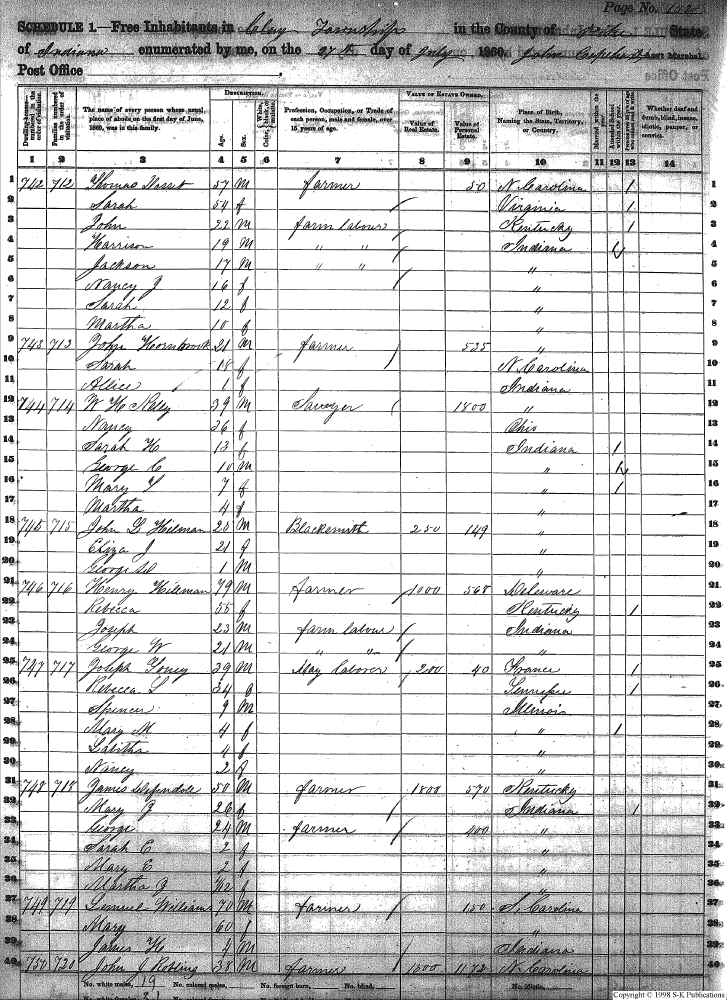 Page No.
SCHEDULE 1.—Free Inhabitants in Clay Township in the County of State
of Indiana enumerated by me, on the 27th day of July 1860. John Ass't Marshal.
Post Office
DESCRIPTION. VALUE OF ESTATE OWNED.
Dwelling-houses numbered in the order of visitation. Families numbered in the order of visitation. The name of every person whose usual place of abode on the first day of June, 1860, was in this family. Age. Sex. Color, White, black, or mulatto. Profession, Occupation, or Trade of each person, male and female, over 15 years of age. Value of Real Estate. Value of Personal Estate. Place of Birth, Naming the State, Territory, or Country. Married within the year. Attended School within the year. Whether deaf and dumb, blind, insane, idiotic, pauper, or convict.
1 2 3 4 5 6 7 8 9 10 11 12 13 14
1 742 712 Thomas 57 M farmer 50 N Carolina / 1
2 Sarah 54 f Virginia / 2
3 John 22 M farm labour Kentucky / 3
4 Harrison 19 M " " Indiana 4
5 Jackson 17 M " " " 5
6 Nancy J 16 f " 6
7 Sarah 12 f " 7
8 Martha 10 f " 8
9 743 713 John Hornbrook 21 M farmer 535 " 9
10 Sarah 18 f N Carolina 10
11 Allice 1 f Indiana 11
12 744 714 W H 39 M Sawyer 1800 " 12
13 Nancy 36 f Ohio 13
14 Sarah H 13 f Indiana 1 14
15 George C 10 M " 15
16 Mary 7 f " 1 16
17 Martha 4 f " 17
18 745 715 John L Hilman 20 M Blacksmith 250 149 " 18
19 Eliza J 21 f " 19
20 George 1 M " 20
21 746 716 Henry Hilman 79 M farmer 1000 568 Deleware 21
22 Rebecca 55 f Kentucky / 22
23 Joseph 23 M farm labour Indiana 23
24 George W 21 M " " " 24
25 747 717 Joseph 39 M Day laborer 200 40 France / 25
26 Rebecca L 34 f Tennessee / 26
27 Spencer 9 M Illinois 27
28 Mary M 4 f " 1 28
29 Tabitha 4 f " 29
30 Nancy 2 f " 30
31 748 718 James 50 M farmer 1800 570 Kentucky 31
32 Mary J 26 f Indiana / 32
33 George 24 M farmer 400 " 33
34 Sarah E 2 f " 34
35 Mary E 2 f " 35
36 Martha J f " 36
37 749 719 Lemuel William 70 M farmer 150 S. Carolina 37
38 Mary 60 f " 38
39 James H 4 M Indiana 39
40 750 720 John J Robling 38 M farmer 1500 1172 N Carolina 40
No. white males, 19 No. colored males, No. foreign born, No. blind, No. idiotic,
Copyright © 1998 S-K Publications